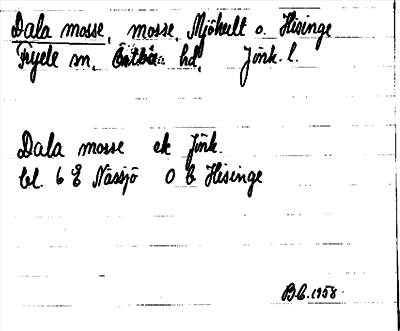 Dala mosse, mosse, Mjöhult o. Hisinge
Fryele sn, Östbo hd, Jönk. l.
Dala mosse ek Jönk.
bl. 6 E Nässjö O b Hisinge
1958